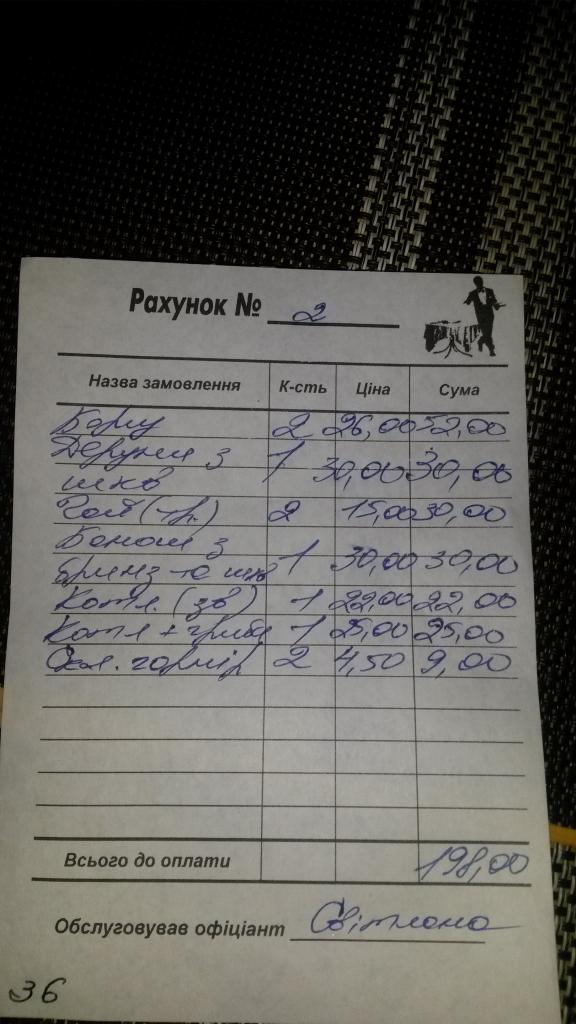 Рахунок № 2
Назва замовлення К-сть Ціна Сума
2 26,00 52,00
Деруни з 1 30,00 30,00
шкв
Чай (тр.) 2 15,00 30,00
Банош з
бринз та шкв 1 30,00 30,00
Котл. (зв) 1 22,00 22,00
Котл + гриби 1 25,00 25,00
гарнір 2 4,50 9,00
Всього до оплати 198,00
Обслуговував офіціант Світлана
36